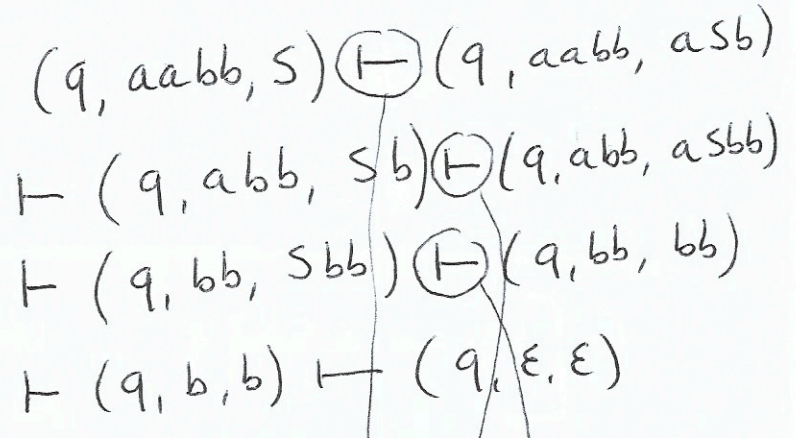 (q, aabb, S) ⊢ (q, aabb, aSb)
⊢ (q, abb, Sb) ⊢ (q, abb, aSbb)
⊢ (q, bb, Sbb) ⊢ (q, bb, bb)
⊢ (q, b, b) ⊢ (q, ε, ε)